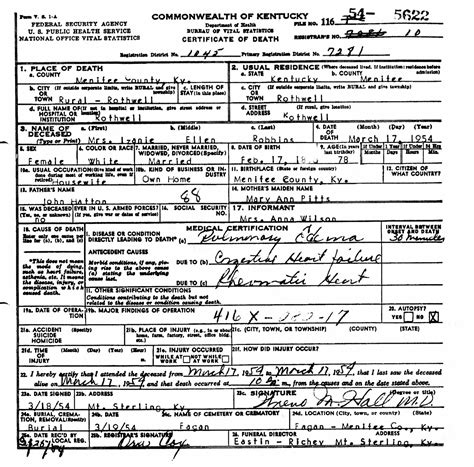 Form V. S. 1-A
COMMONWEALTH OF KENTUCKY
FEDERAL SECURITY AGENCY
U. S. PUBLIC HEALTH SERVICE
NATIONAL OFFICE VITAL STATISTICS
Department of Health
BUREAU OF VITAL STATISTICS
CERTIFICATE OF DEATH
FILE NO. 116 54- 5622
REGISTRAR'S NO. 10
Registration District No. 1045 Primary Registration District No. 7291
1. PLACE OF DEATH
a. COUNTY Menifee County, Ky.
2. USUAL RESIDENCE (Where deceased lived. If institution: residence before admission)
a. STATE Kentucky b. COUNTY Menifee
b. CITY (If outside corporate limits, write RURAL and give township) OR TOWN Rural - Rothwell
c. LENGTH OF STAY (in this place)
c. CITY (If outside corporate limits, write RURAL and give township) OR TOWN Rothwell
d. FULL NAME OF (If not in hospital or institution, give street address or location) HOSPITAL OR INSTITUTION Rothwell
d. STREET ADDRESS (If rural, give location) Rothwell
3. NAME OF DECEASED (Type or Print) a. (First) b. (Middle) c. (Last)
Mrs. Ellen Robbins
4. DATE OF DEATH (Month) (Day) (Year) March 17, 1954
5. SEX Female
6. COLOR OR RACE White
7. MARRIED, NEVER MARRIED, WIDOWED, DIVORCED (Specify) Married
8. DATE OF BIRTH Feb. 17,
9. AGE (In years last birthday) 78
10a. USUAL OCCUPATION Housewife
10b. KIND OF BUSINESS OR INDUSTRY Own Home
11. BIRTHPLACE (State or foreign country) Menifee County, Ky.
12. CITIZEN OF WHAT COUNTRY?
13. FATHER'S NAME John Hatton
88
14. MOTHER'S MAIDEN NAME Mary Ann Pitts
15. WAS DECEASED EVER IN U.S. ARMED FORCES? (Yes, no, or unknown) (If yes, give war or dates of service) no
16. SOCIAL SECURITY NO.
17. INFORMANT Mrs. Anna Wilson
18. CAUSE OF DEATH
MEDICAL CERTIFICATION
INTERVAL BETWEEN ONSET AND DEATH
I. DISEASE OR CONDITION DIRECTLY LEADING TO DEATH (a) Pulmonary Edema 30 minutes
ANTECEDENT CAUSES
Morbid conditions, if any, giving rise to the above cause (a) stating the underlying cause last.
DUE TO (b) Congestive Heart failure
DUE TO (c) Rheumatic Heart
*This does not mean the mode of dying, such as heart failure, asthenia, etc. It means the disease, injury, or complication which caused death.
II. OTHER SIGNIFICANT CONDITIONS
Conditions contributing to the death but not related to the disease or condition causing death.
19a. DATE OF OPERATION
19b. MAJOR FINDINGS OF OPERATION
416 X-
20. AUTOPSY? YES NO X
21a. ACCIDENT SUICIDE HOMICIDE (Specify)
21b. PLACE OF INJURY (e.g., in or about home, farm, factory, street, office bldg., etc.)
21c. (CITY, TOWN, OR TOWNSHIP) (COUNTY) (STATE)
21d. TIME OF INJURY (Month) (Day) (Year) (Hour)
21e. INJURY OCCURRED WHILE AT WORK NOT WHILE AT WORK
21f. HOW DID INJURY OCCUR?
22. I hereby certify that I attended the deceased from March 17, 1954 to March 17, 1954, that I last saw the deceased
alive on March 17, 1954 and that death occurred at m., from the causes and on the date stated above.
23a. DATE SIGNED 3/18/54
23b. ADDRESS Mt. Sterling, Ky.
23c. SIGNATURE M. Hall M.D.
24a. BURIAL, CREMATION, REMOVAL (Specify) Burial
24b. DATE 3/19/54
24c. NAME OF CEMETERY OR CREMATORY Fagan
24d. LOCATION (City, town, or county) (State) Fagan - Menifee Co., Ky.
25a. DATE REC'D BY LOCAL REG.
25b. REGISTRAR'S SIGNATURE
26. FUNERAL DIRECTOR ADDRESS
Eastin - Richey Mt. Sterling, Ky.